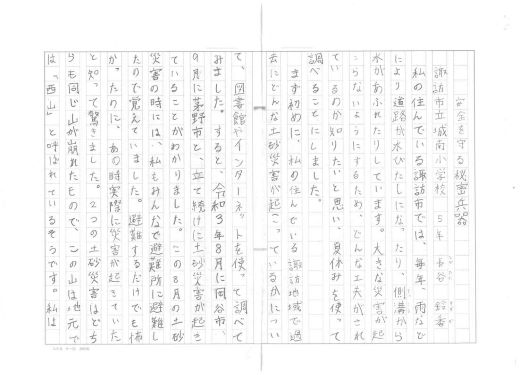 安全を守る秘密兵器
諏訪市立城南小学校 5年 長谷 鈴香
私の住んでいる諏訪市では、毎年、雨など
により道路が水びたしになったり、側溝から
水があふれたりしています。大きな災害が起
こらないようにするため、どんな工夫がされ
ているのか知りたいと思い、夏休みを使って
調べることにしました。
まず初めに、私の住んでいる諏訪地域で過
去にどんな土砂災害が起こっているかについ
て、図書館やインターネットを使って調べて
みました。すると、令和3年8月に岡谷市、
9月に茅野市と、立て続けに土砂災害が起き
ていることがわかりました。この8月の土砂
災害の時には、私もみんなで避難所に避難し
たので覚えていました。避難するだけでも怖
かったのに、あの時実際に災害が起きていた
と知って驚きました。2つの土砂災害はどち
らも同じ山が崩れたもので、この山は地元で
は「西山」と呼ばれているそうです。私は